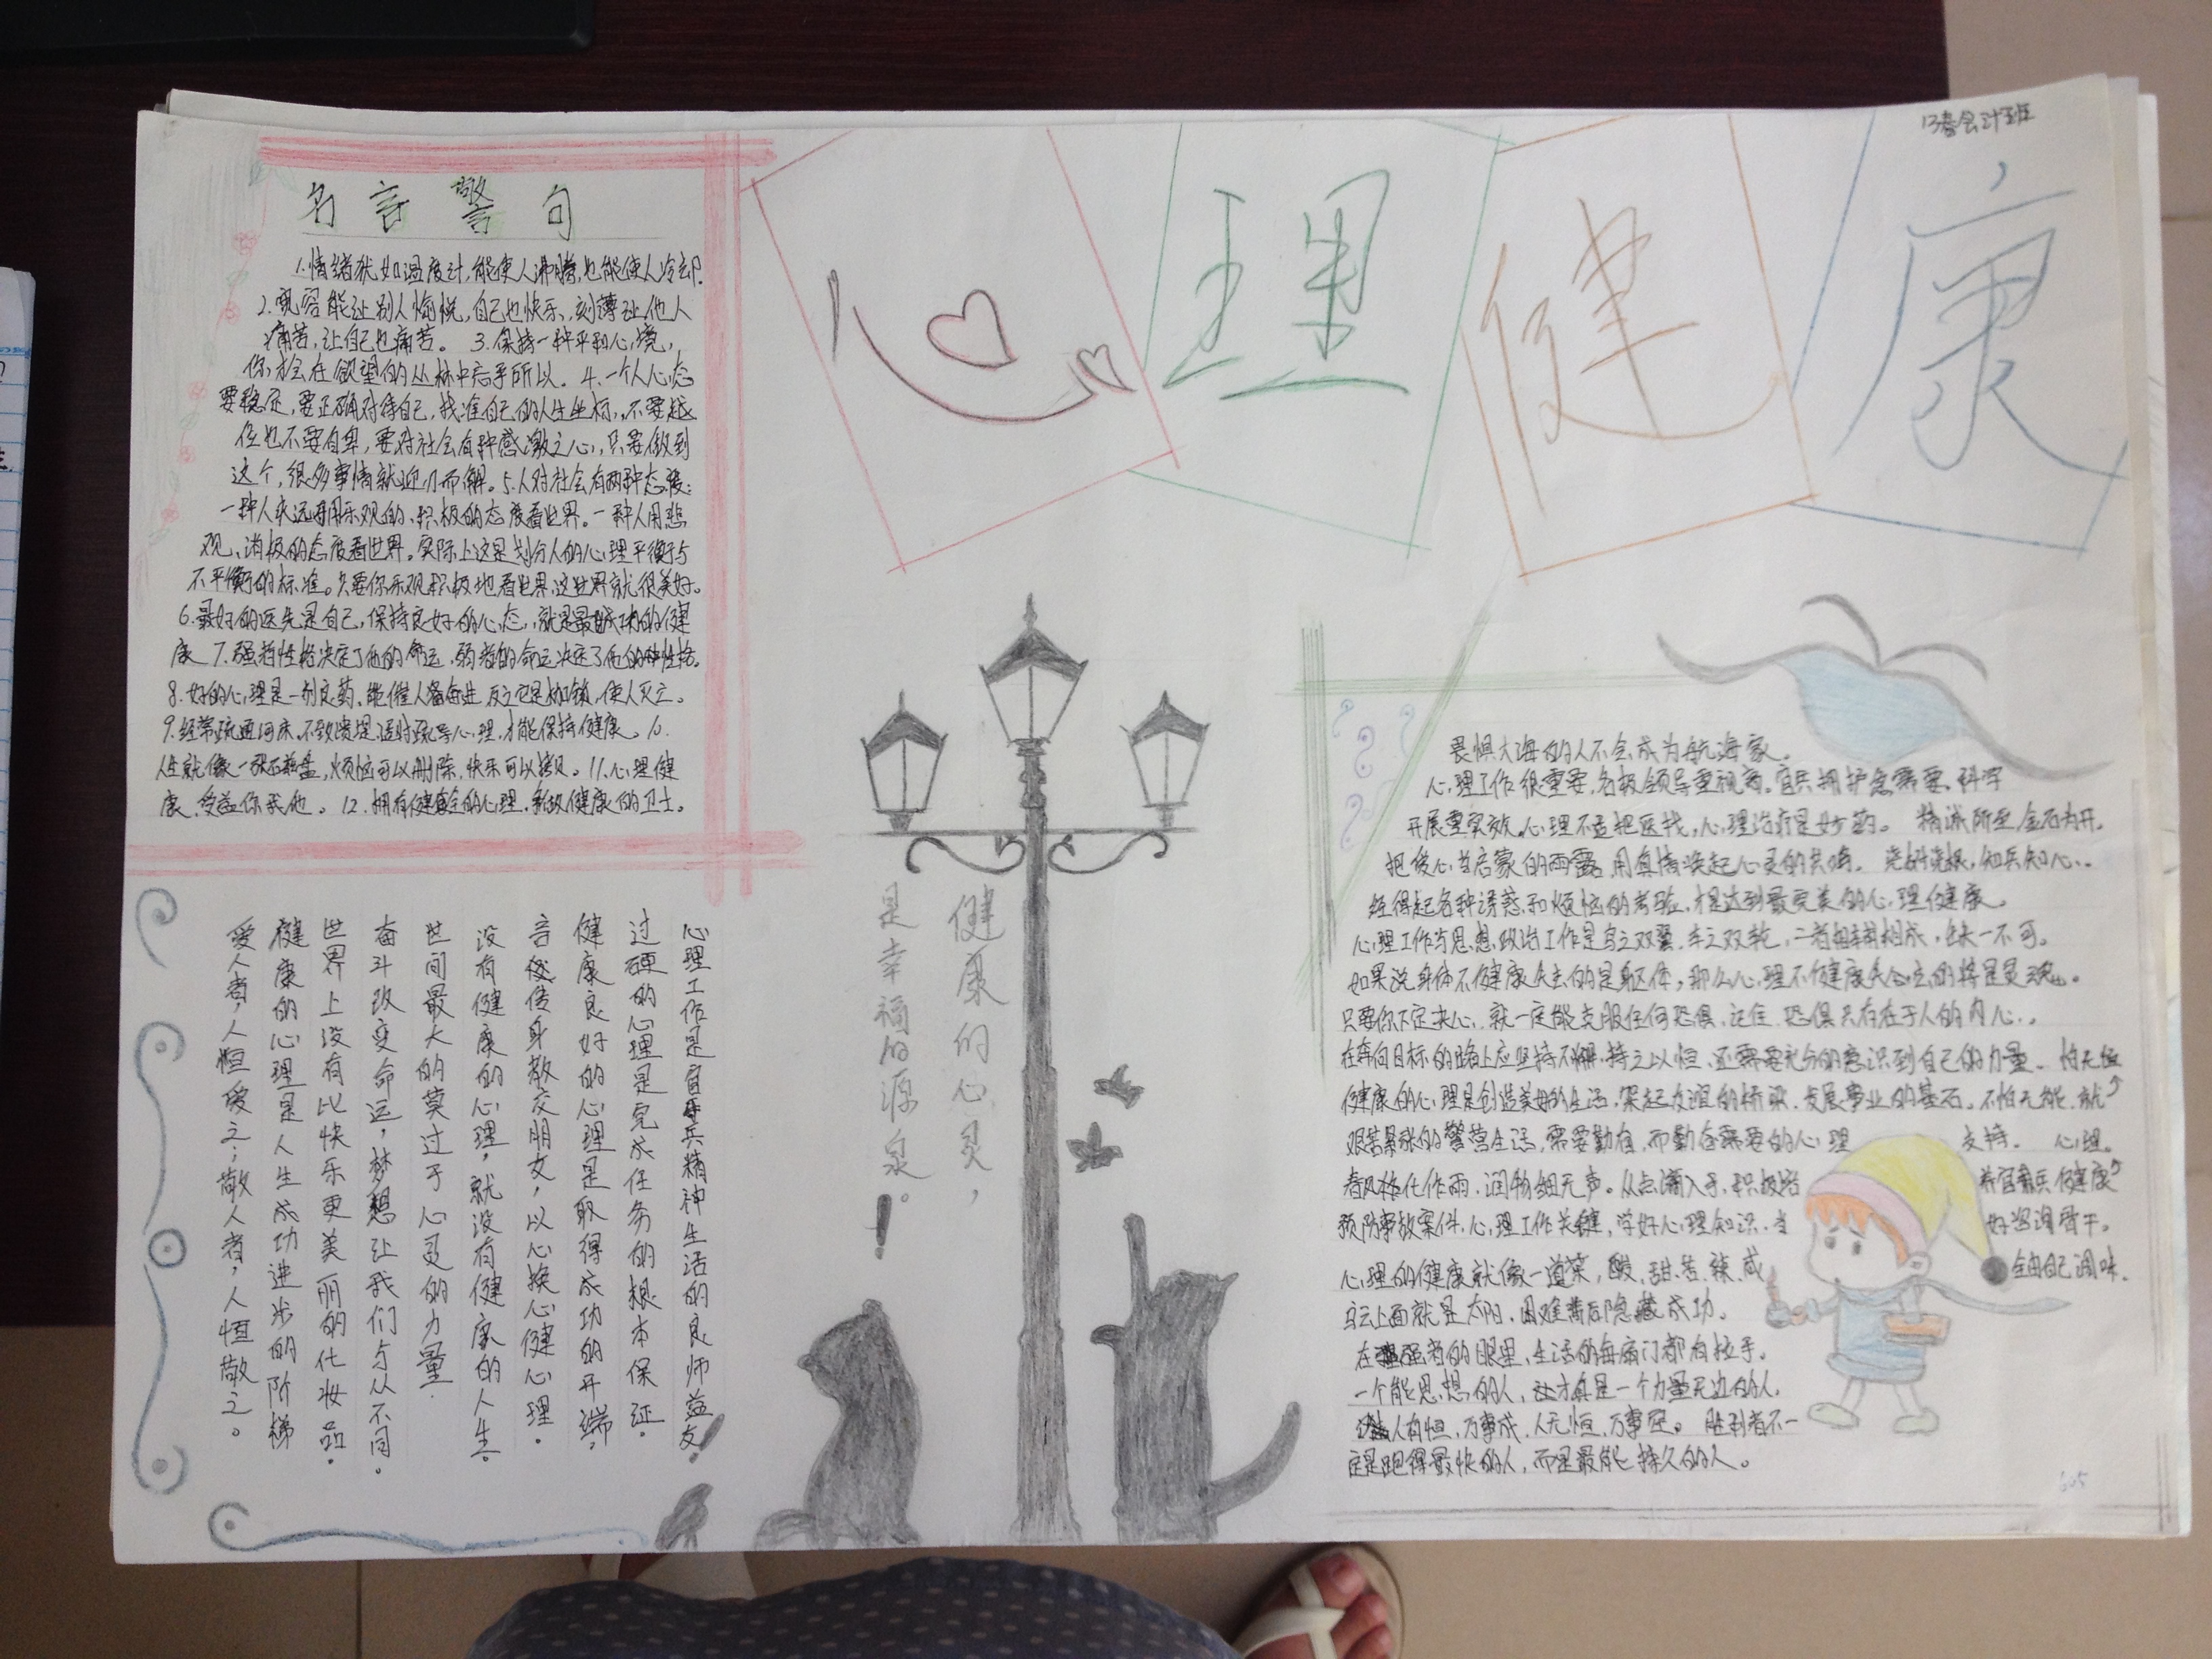 13春会计班
心理健康
名言警句
1.情绪犹如温度计,能使人沸腾,也能使人冷却.
2.宽容能让别人愉悦,自己也快乐,刻薄让他人
痛苦,让自己也痛苦。 3.保持一种平和心境,
你才会在欲望的丛林中忘乎所以。4.一个人心态
要稳定,要正确对待自己,找准自己的人生坐标,不要越
位也不要自卑,要对社会有种感激之心,只要做到
这个,很多事情就迎刃而解。5.人对社会有两种态度:
一种人永远用乐观的、积极的态度看世界。一种人用悲
观、消极的态度看世界。实际上这是划分人的心理平衡与
不平衡的标准。只要你乐观积极地看世界,这世界就很美好。
6.最好的医先是自己,保持良好的心态,就是最成功的健
康 7.强者性格决定了他的命运,弱者的命运决定了他的性格。
8.好的心理是一剂良药,能催人奋进,反之它是枷锁,使人灭亡。
9.经常疏通河床,不致溃堤,适时疏导心理,才能保持健康。10.
人生就像一张磁盘,烦恼可以删除,快乐可以拷贝。11.心理健
康,受益你我他。12.拥有健全的心理,争做健康的卫士。
心理工作是官兵精神生活的良师益友!
过硬的心理是完成任务的根本保证.
健康良好的心理是取得成功的开端.
言传身教交朋友,以心换心健心理.
没有健康的心理,就没有健康的人生.
世间最大的莫过于心灵的力量.
奋斗改变命运,梦想让我们与从不同.
世界上没有比快乐更美丽的化妆品.
健康的心理是人生成功进步的阶梯
爱人者,人恒爱之;敬人者,人恒敬之。
健康的心灵,
是幸福的源泉。!
畏惧大海的人不会成为航海家。
心理工作很重要,各级领导重视高。官兵拥护急需要,科学
开展重实效。心理不适把医找,心理治疗是妙药。 精诚所至金石为开。
把爱心当启蒙的雨露,用真情唤起心灵的共鸣。 浇树浇根,知兵知心。
经得起各种诱惑和烦恼的考验,才是达到最完美的心理健康。
心理工作与思想政治工作是鸟之双翼,车之双轮,二者相辅相成,缺一不可。
如果说身体不健康失去的是躯体,那么心理不健康失去的将是灵魂。
只要你下定决心,就一定能克服任何恐惧,记住,恐惧只存在于人的内心。
在奔向目标的路上应坚持不懈,持之以恒,还需要充分的意识到自己的力量. 怕无恒
健康的心理是创造美好的生活,架起友谊的桥梁,发展事业的基石。不怕无能,就
艰苦紧张的警营生活,需要勤奋,而勤奋需要的心理 支持. 心理.
春风化作雨,润物细无声。从点滴入手,积极培 养官兵健康
预防事故案件,心理工作关键,学好心理知识,当 好咨询骨干。
心理的健康就像一道菜,酸、甜、苦、辣、咸 全由自己调味.
乌云上面就是太阳,困难背后隐藏成功。
在强者的眼里,生活的每扇门都有拉手。
一个能思想的人,才真是一个力量无边的人.
人有恒,万事成,人无恒,万事 。 胜利者不一
定是跑得最快的人,而是最能持久的人。